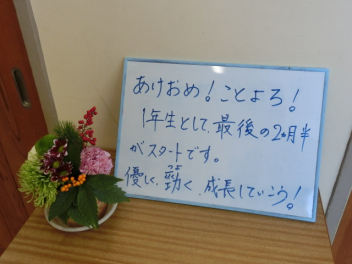 あけおめ！ことよろ！
1年生として、最後の2ヶ月半
がスタートです。
優しく、勁く、成長していこう！